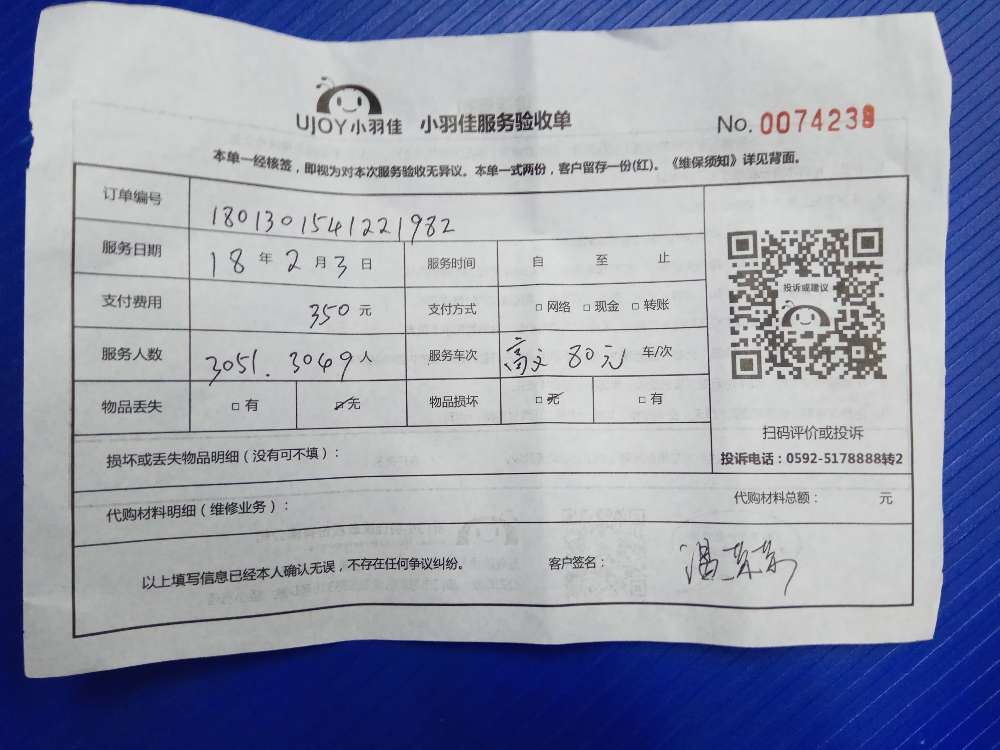 UJOY小羽佳 小羽佳服务验收单 No. 0074238
本单一经核签，即视为对本次服务验收无异议。本单一式两份，客户留存一份(红)。《维保须知》详见背面。
订单编号 1801301541221982
服务日期 18年2月3日 服务时间 自 至 止
支付费用 350元 支付方式 □网络 □现金 □转账
服务人数 3051. 3049人 服务车次 80元 车/次
物品丢失 □有 □无 物品损坏 □无 □有
投诉或建议
扫码评价或投诉
投诉电话：0592-5178888转2
损坏或丢失物品明细（没有可不填）：
代购材料明细（维修业务）： 代购材料总额： 元
以上填写信息已经本人确认无误，不存在任何争议纠纷。 客户签名：